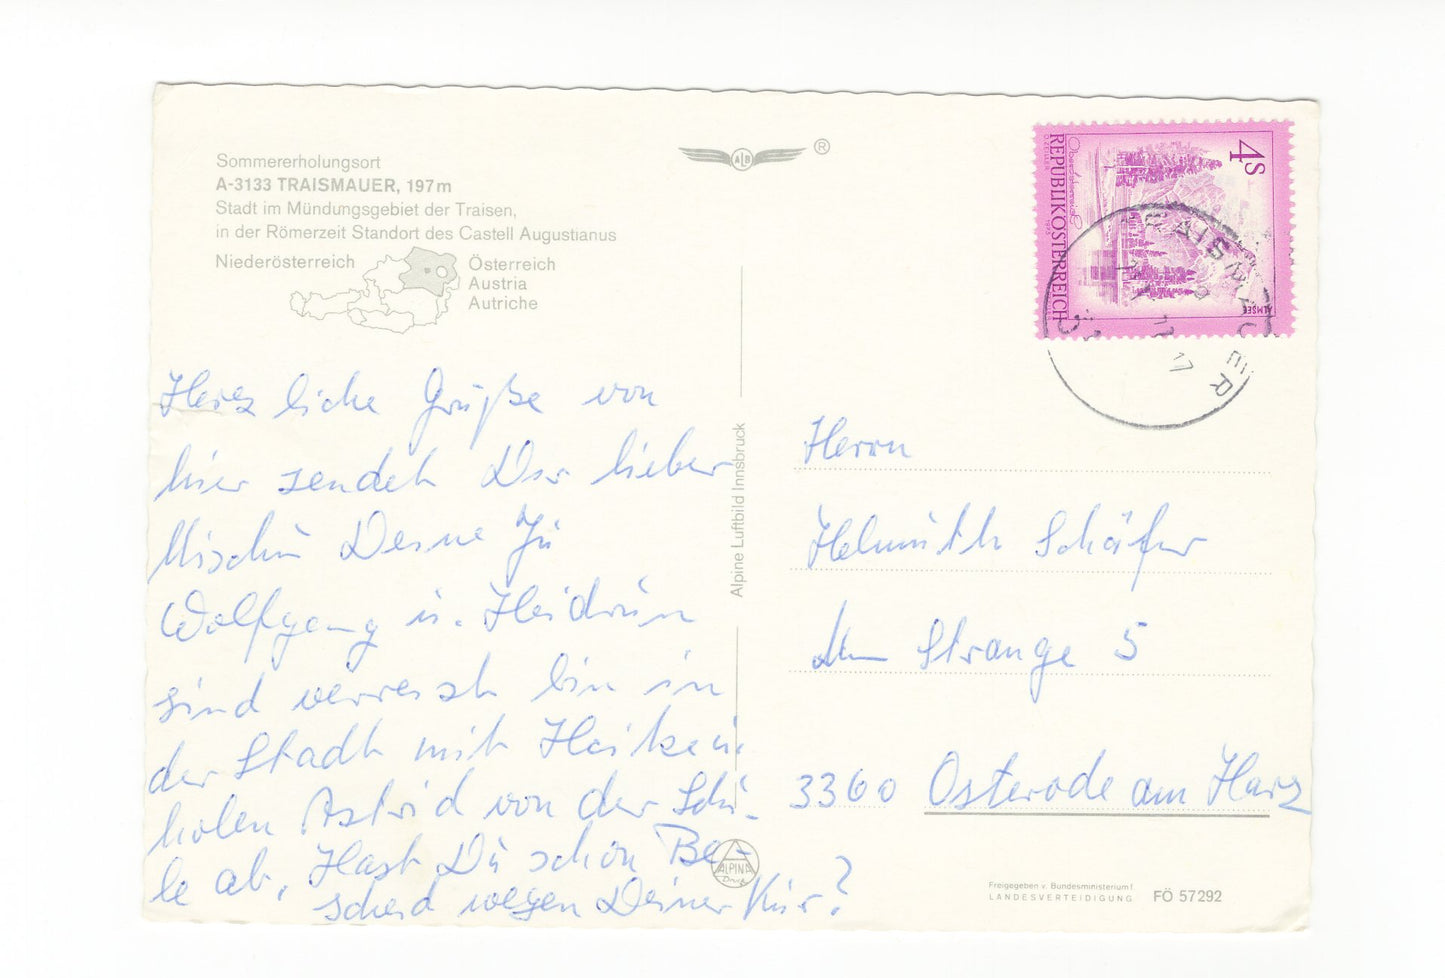 Sommererholungsort
A-3133 TRAISMAUER, 197 m
Stadt im Mündungsgebiet der Traisen,
in der Römerzeit Standort des Castell Augustianus
Niederösterreich
Österreich
Austria
Autriche
ALB
®
4S
REPUBLIK ÖSTERREICH
ALMSEE
Herzliche Grüße von
hier sendet Dir lieber
Deine
Wolfgang u. Heidrun
sind verreist bin in
der Stadt mit Heike u.
holen Astrid von der Schu-
le ab. Hast Du schon Be-
scheid wegen Deiner Kur?
Alpine Luftbild Innsbruck
ALPINA
Druck
Herrn
Helmuth Schäfer
Strange 5
3360 Osterode am Harz
Freigegeben v. Bundesministerium f.
LANDESVERTEIDIGUNG
FÖ 57292